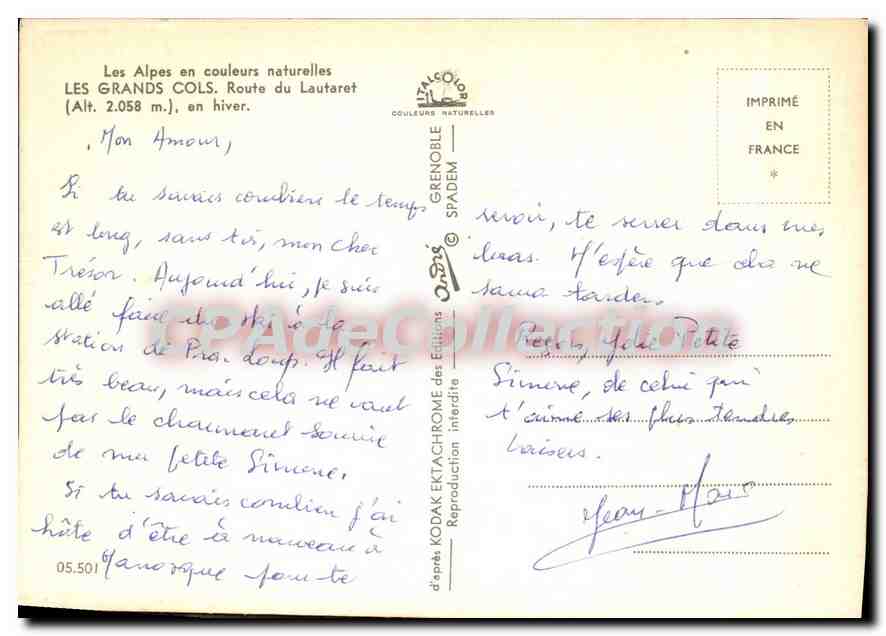 Les Alpes en couleurs naturelles
LES GRANDS COLS. Route du Lautaret
(Alt. 2.058 m.), en hiver.
Mon Amour,
Si tu savais combien le temps
est long, sans toi, mon cher
Trésor. Aujourd'hui, je suis
allé faire du ski à la
station de Pra-Loup. Il fait
très beau, mais cela ne vaut
pas le charmant sourire
de ma petite Simone.
Si tu savais combien j'ai
hâte d'être à nouveau à
Manosque pour te
05.501
ITALCOLOR
COULEURS NATURELLES
d'après KODAK EKTACHROME des Editions André GRENOBLE
Reproduction interdite © SPADEM
IMPRIMÉ
EN
FRANCE
*
revoir, te serrer dans mes
bras. J'espère que cela ne
saura tarder.
Reçois, Jolie Petite
Simone, de celui qui
t'aime ses plus tendres
baisers.
Jean-Marc
CPAdeCollection